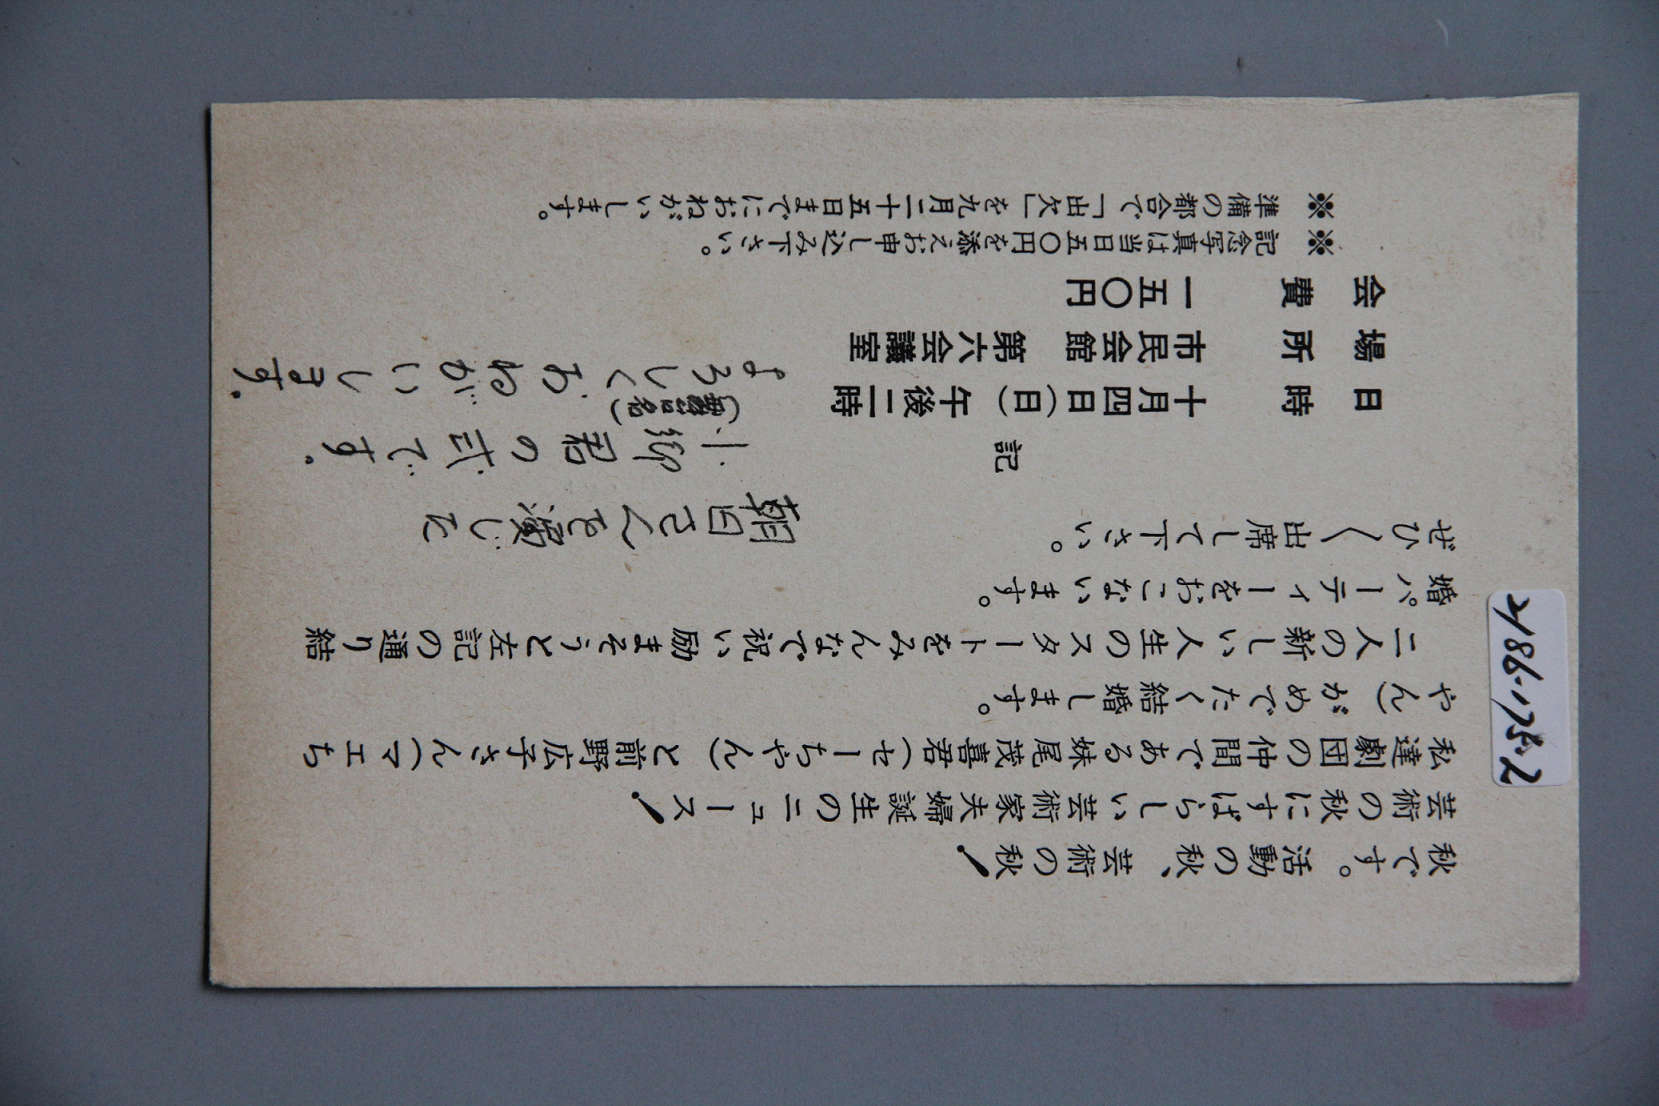 秋です。活動の秋、芸術の秋！
芸術の秋にすばらしい芸術家夫婦誕生のニュース！
私達劇団の仲間である妹尾茂喜君(セーちゃん)と前野広子さん(マエち
ゃん)がめでたく結婚します。
二人の新しい人生のスタートをみんなで祝い励まそうと左記の通り結
婚パーティーをおこないます。
ぜひ〱出席して下さい。
朝日さんを演じた
小柳君の式です。
よろしくおねがいします。
記
日時 十月四日(日) 午後二時
場所 市民会館 第六会議室
会費 一五〇円
※ 記念写真は当日五〇円を添えお申し込み下さい。
※ 準備の都合で「出欠」を九月二十五日までにおねがいします。
2186-175-2